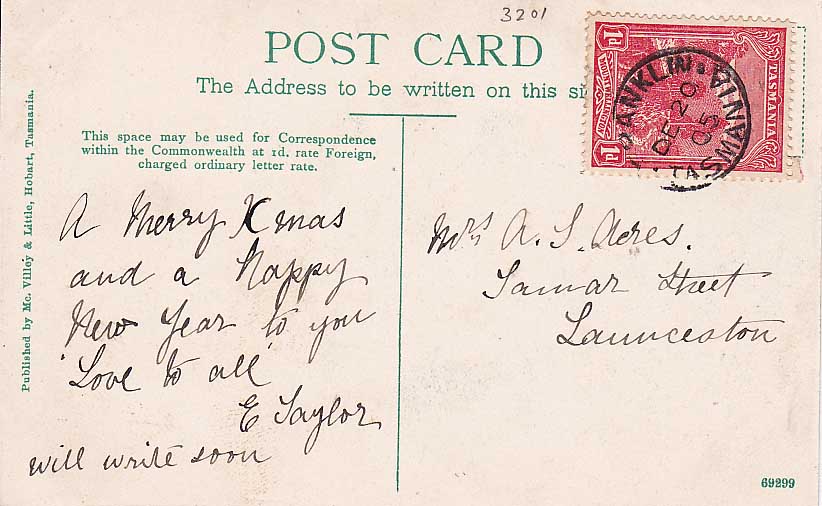 3201
POST CARD
The Address to be written on this si
1d 1d
TASMANIA
MOUNT WELLINGTON
1d
FRANKLIN
DE 20
05
TASMANIA
This space may be used for Correspondence
within the Commonwealth at 1d. rate Foreign,
charged ordinary letter rate.
A Merry Xmas
and a Happy
New Year to you
'Love to all'
E Taylor
will write soon
Mrs A. S. Acres.
Tamar Street
Launceston
Published by Mc. Villey & Little, Hobart, Tasmania.
69299